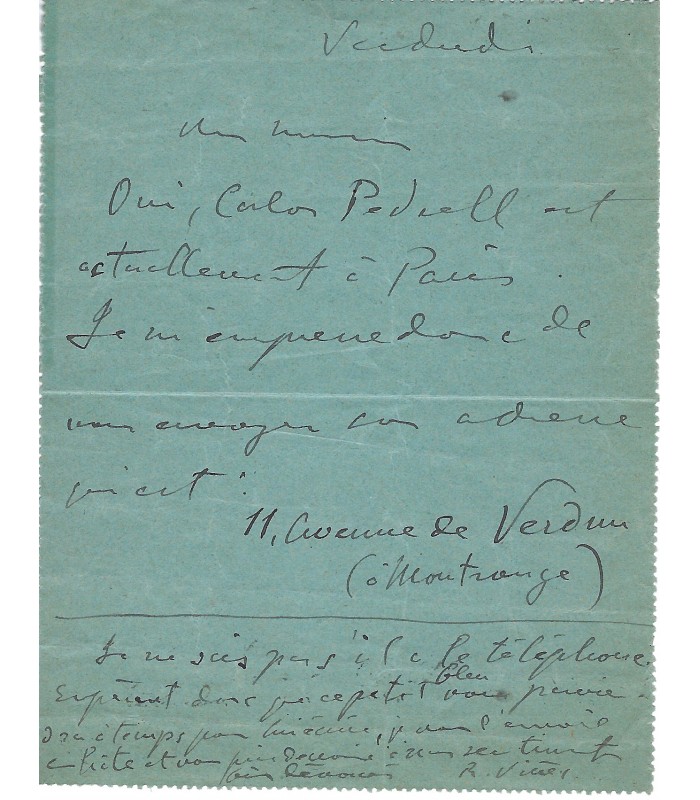 Vendredi
Oui, Carlos Pedrell est
actuellement à Paris.
Je m'empresse donc de
vous envoyer son adresse
qui est :
11, Avenue de Verdun
(à Montrouge)
Je ne sais pas s'il a le téléphone.
Espérant donc que ce petit bleu vous parvien-
dra à temps pour , je vous l'envoie
en hâte et vous prie de croire à mes sentiments
dévoués R. Viñes.